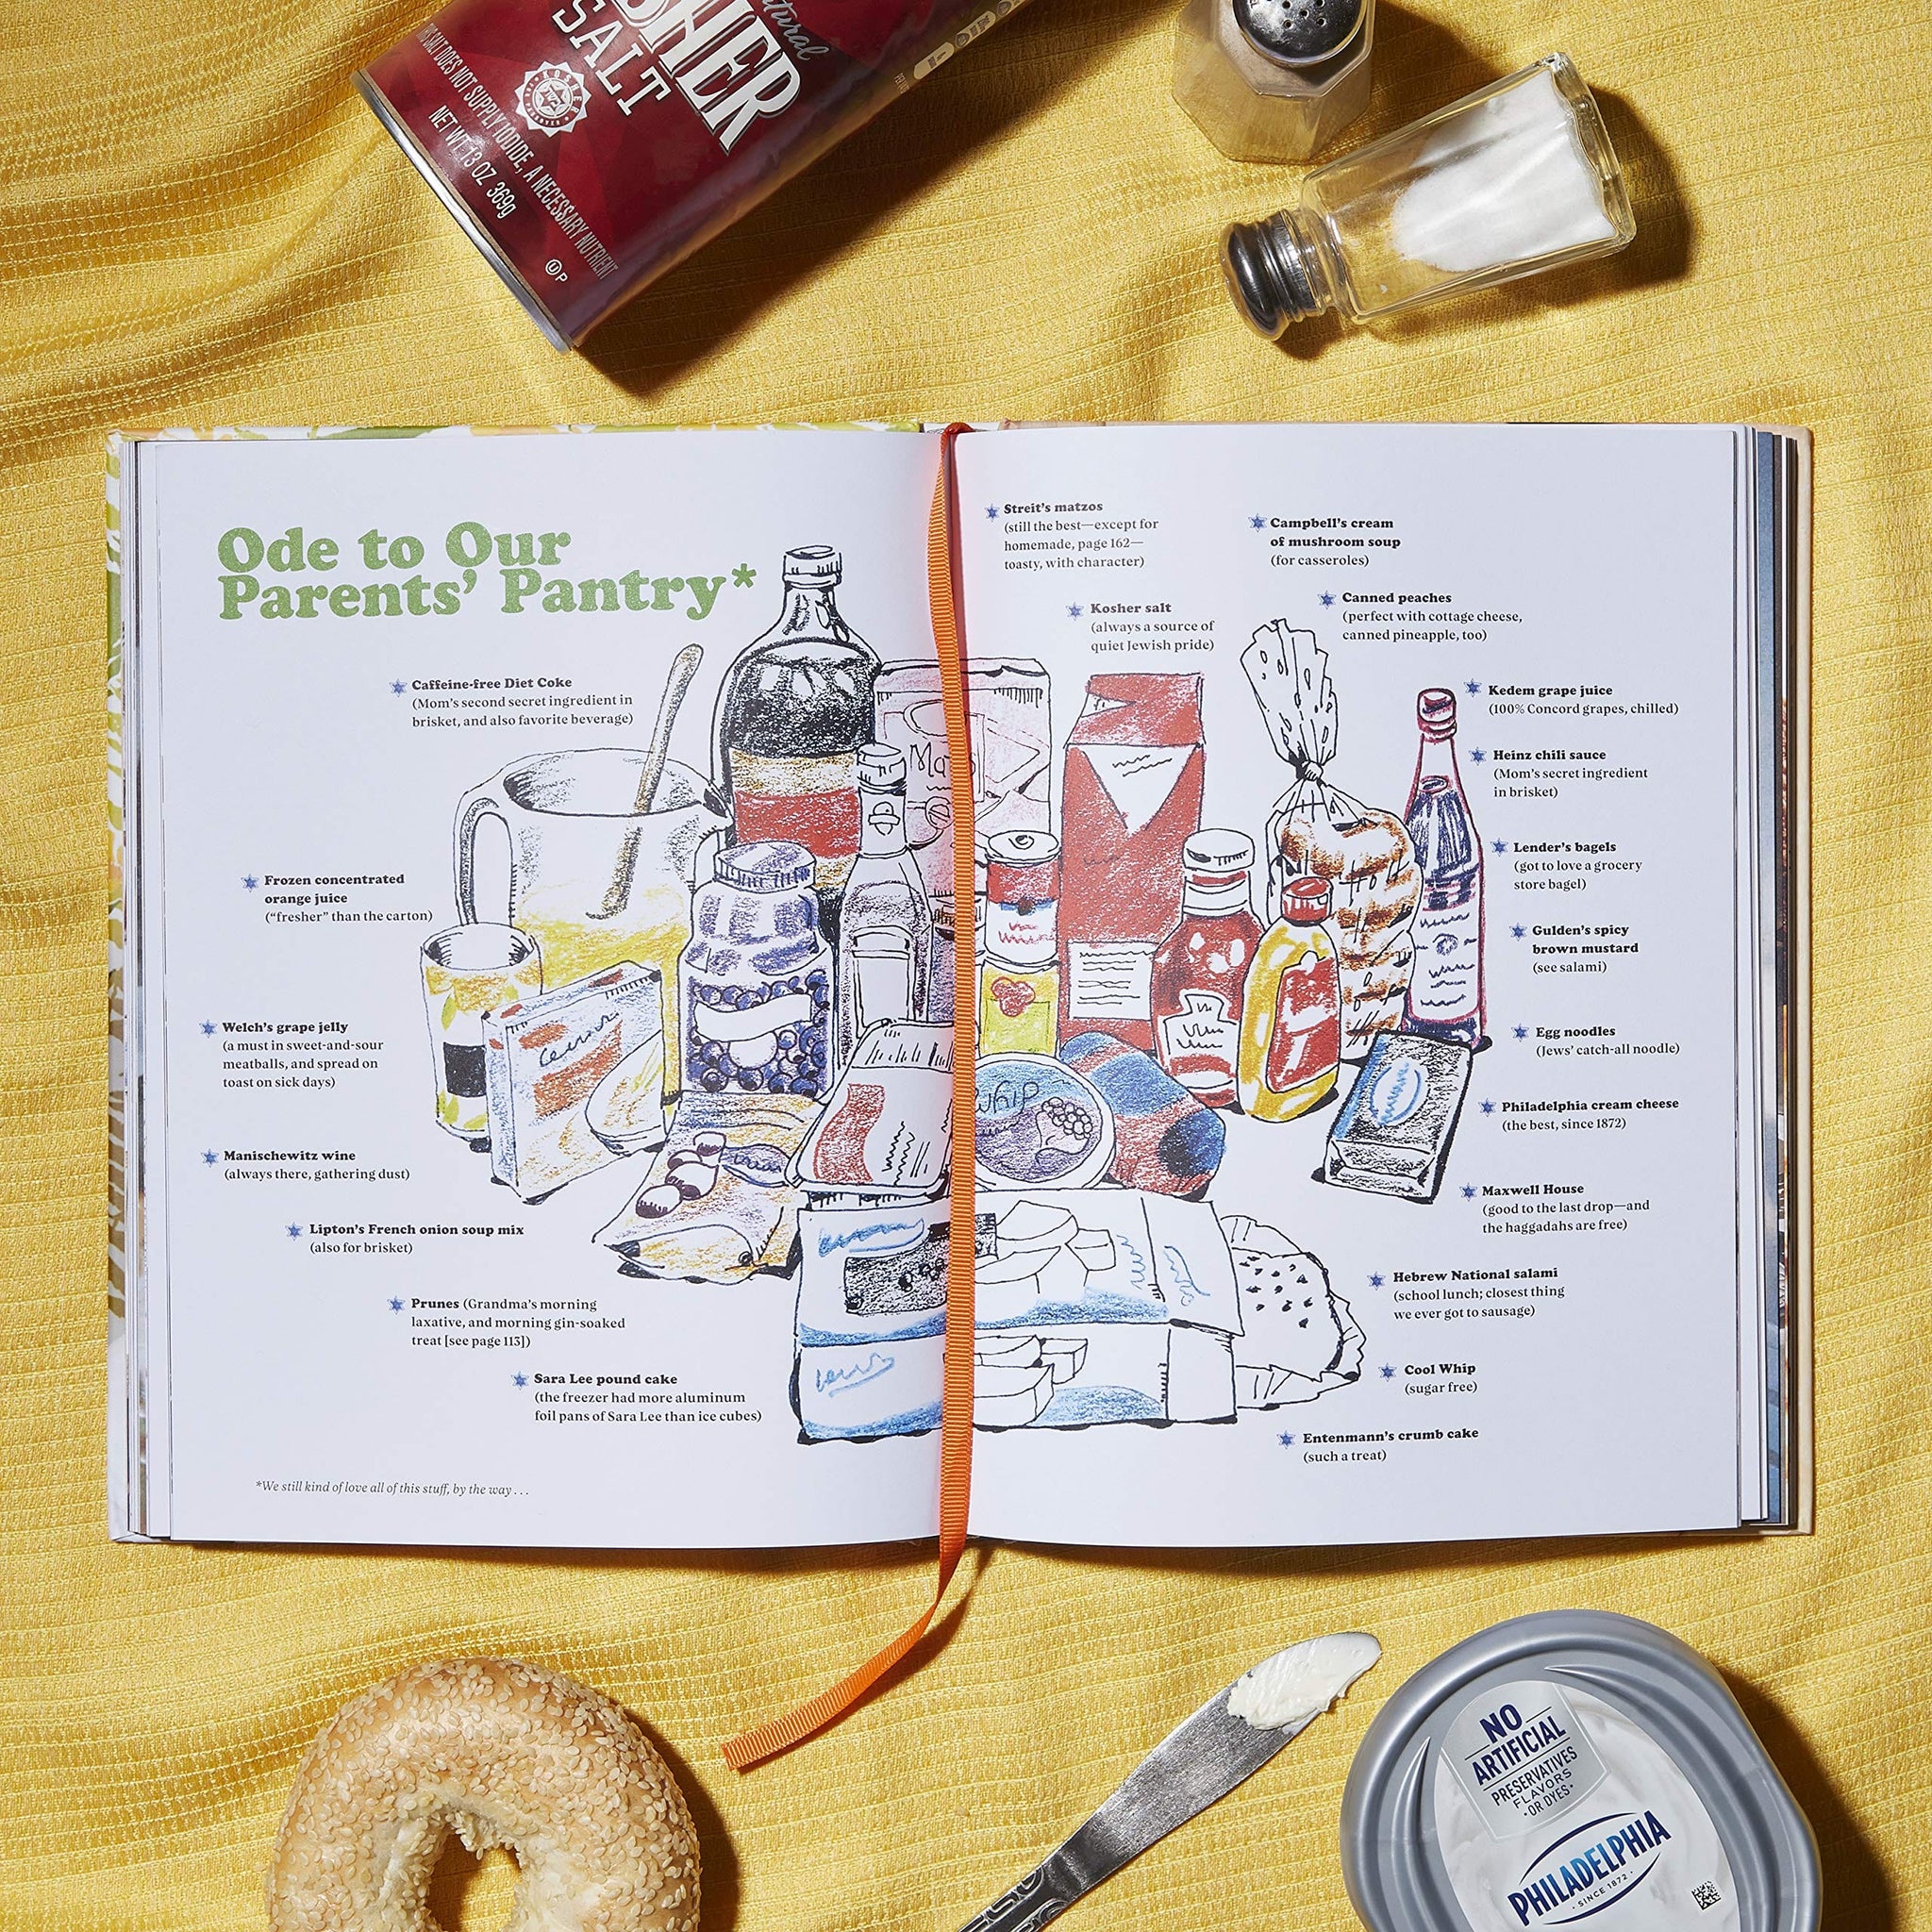 SALT
THIS SALT DOES NOT SUPPLY IODIDE, A NECESSARY NUTRIENT
NET WT 13 OZ 369g
Ⓤ P
Ode to Our
Parents’ Pantry*
Caffeine-free Diet Coke
(Mom’s second secret ingredient in
brisket, and also favorite beverage)
Frozen concentrated
orange juice
(“fresher” than the carton)
Welch’s grape jelly
(a must in sweet-and-sour
meatballs, and spread on
toast on sick days)
Manischewitz wine
(always there, gathering dust)
Lipton’s French onion soup mix
(also for brisket)
Prunes (Grandma’s morning
laxative, and morning gin-soaked
treat [see page 113])
Sara Lee pound cake
(the freezer had more aluminum
foil pans of Sara Lee than ice cubes)
*We still kind of love all of this stuff, by the way . . .
Streit’s matzos
(still the best—except for
homemade, page 162—
toasty, with character)
Campbell’s cream
of mushroom soup
(for casseroles)
Kosher salt
(always a source of
quiet Jewish pride)
Canned peaches
(perfect with cottage cheese,
canned pineapple, too)
Kedem grape juice
(100% Concord grapes, chilled)
Heinz chili sauce
(Mom’s secret ingredient
in brisket)
Lender’s bagels
(got to love a grocery
store bagel)
Gulden’s spicy
brown mustard
(see salami)
Egg noodles
(Jews’ catch-all noodle)
Philadelphia cream cheese
(the best, since 1872)
Maxwell House
(good to the last drop—and
the haggadahs are free)
Hebrew National salami
(school lunch; closest thing
we ever got to sausage)
Cool Whip
(sugar free)
Entenmann’s crumb cake
(such a treat)
whip
NO
ARTIFICIAL
PRESERVATIVES
FLAVORS
•OR DYES•
PHILADELPHIA
• SINCE 1872 •